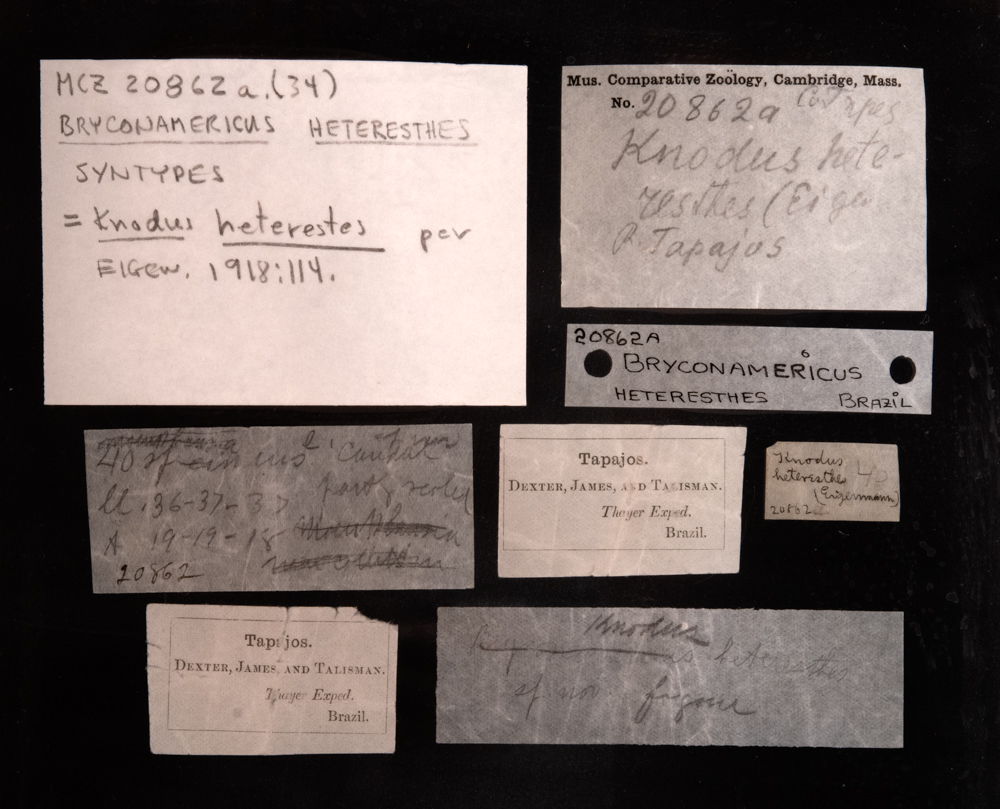 MCZ 20862a.(34)
BRYCONAMERICUS HETERESTHES
SYNTYPES
= Knodus heterestes per
EIGEN. 1918:114.
Mus. Comparative Zoölogy, Cambridge, Mass.
No. 20862a
Knodus hete-
resthes (Eige
R. Tapajos
20862A
BRYCONAMERICUS
HETERESTHES BRAZIL
40
ll. 36-37-37
A 19-19-18
20862
Tapajos.
DEXTER, JAMES, AND TALISMAN.
Thayer Exped.
Brazil.
Knodus 40
heteresthes
(Eigenmann)
20862
Tapajos.
DEXTER, JAMES, AND TALISMAN.
Thayer Exped.
Brazil.
Knodus
heteresthes
sp nov